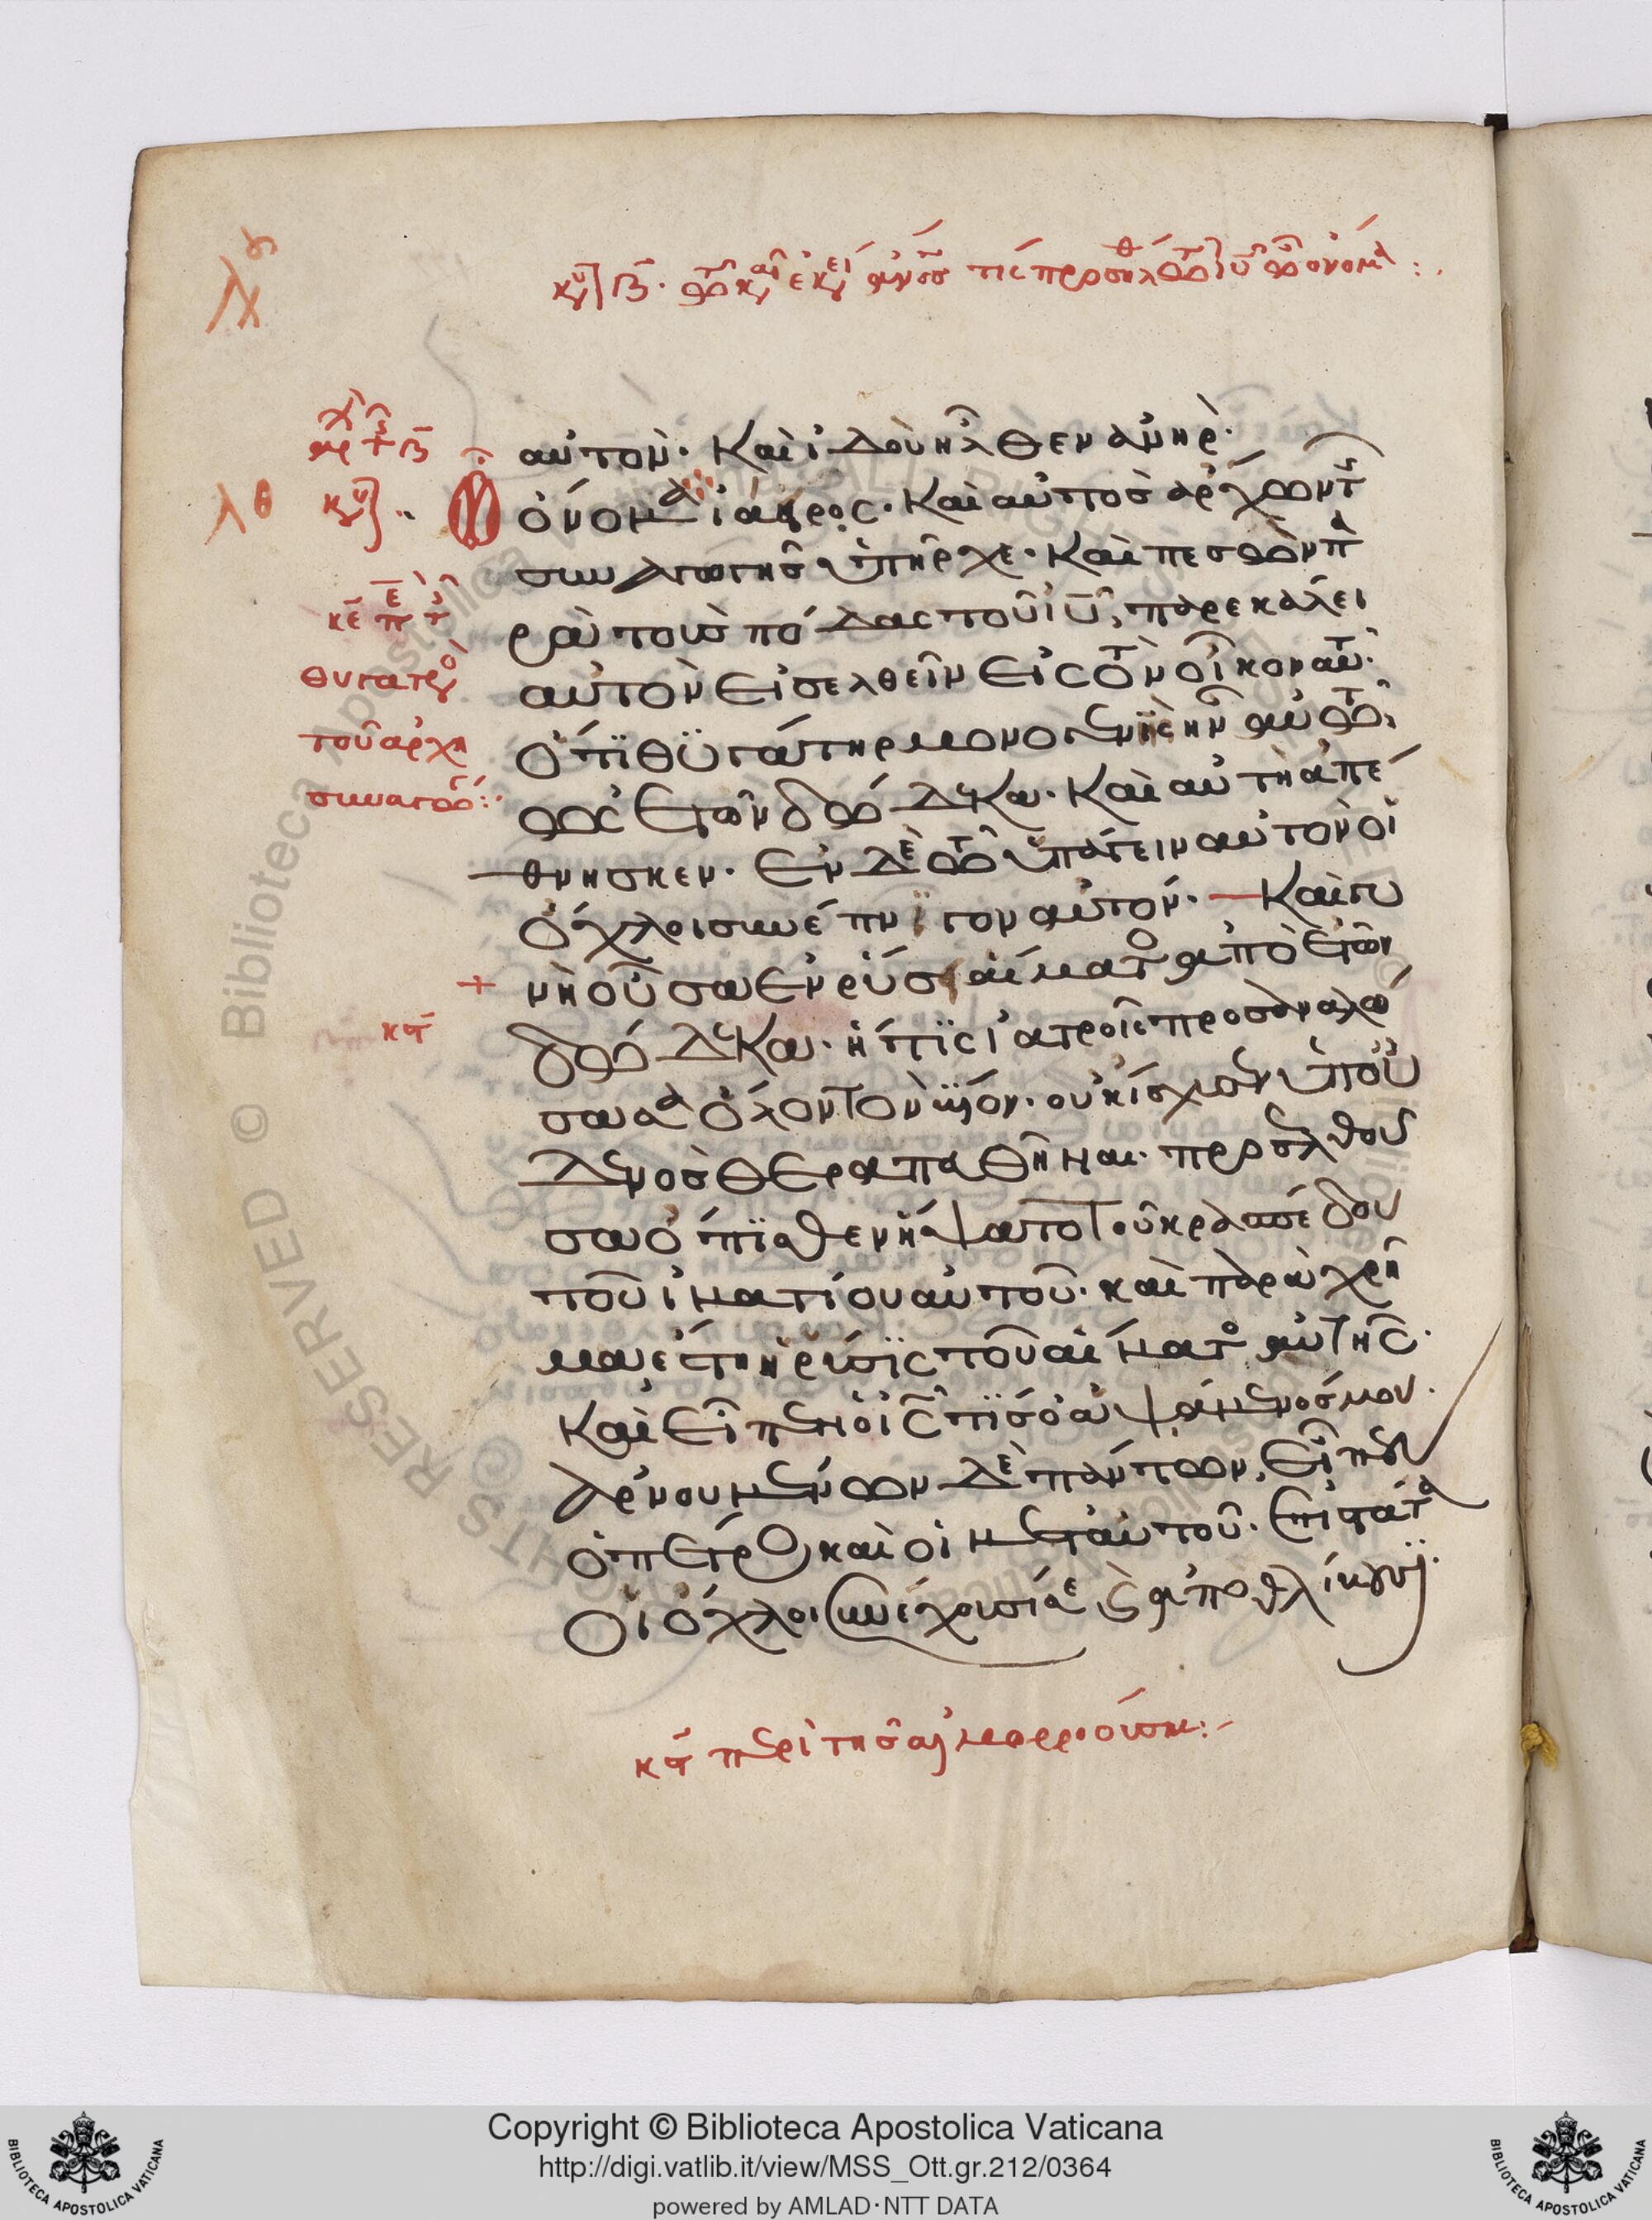 τῶ καιρῶ ἐκείνω ἄνος τὶς προσῆλθε τῶ ιυ ὧ ὄνομα
αὐτόν. Καὶ ἰδοὺ ἦλθεν ἀνὴρ
λθ
ὄνομα ἰάειρος. Καὶ αὐτὸς ἄρχων τ
συναγωγῆς ὑπῆρχε. Καὶ πεσὼν πα
ρὰ τοὺς πόδας τοῦ ιυ, παρεκάλει
αὐτὸν εἰσελθεῖν εἰς τὸν οἶκον αὐτ
θυγατρὸ
ὅτι θυγάτηρ μονογενὴς ἦν αὐτῶ
τοῦ ἀρχη
ὡς ἐτῶν δώδεκα. Καὶ αὐτὴ ἀπέ
συναγώ
θνησκεν. Ἐν δὲ τῶ ὑπάγειν αὐτὸν οἱ
ὄχλοι συνέπνιγον αὐτόν. Καὶ γυ
νὴ οὖσα ἐν ῥύσει αἵματος ἀπὸ ἐτῶν
δώδεκα. ἥτις ἰατροῖς προσαναλώ
σασα ὅλον τὸν βίον. οὐκ ἴσχυσεν ὑπ οὐ
δενὸς θεραπευθῆναι. προσελθοῦ
σα ὄπισθεν ἥψατο τοῦ κρασπέδου
τοῦ ἱματίου αὐτοῦ. καὶ παραχρῆ
μα ἔστη ἡ ῥύσις τοῦ αἵματος αὐτῆς.
Καὶ εἶπεν ὁ ις τίς ὁ ἁψάμενός μου.
ἀρνουμένων δὲ πάντων, εἶπεν
ὁ πέτρος καὶ οἱ μετ αὐτοῦ. ἐπιστάτα
οἱ ὄχλοι συνέχουσί σε καὶ ἀποθλίβουσι
κϛ περὶ τῆς αἱμορροούσης
Copyright © Biblioteca Apostolica Vaticana
http://digi.vatlib.it/view/MSS_Ott.gr.212/0364
powered by AMLAD·NTT DATA